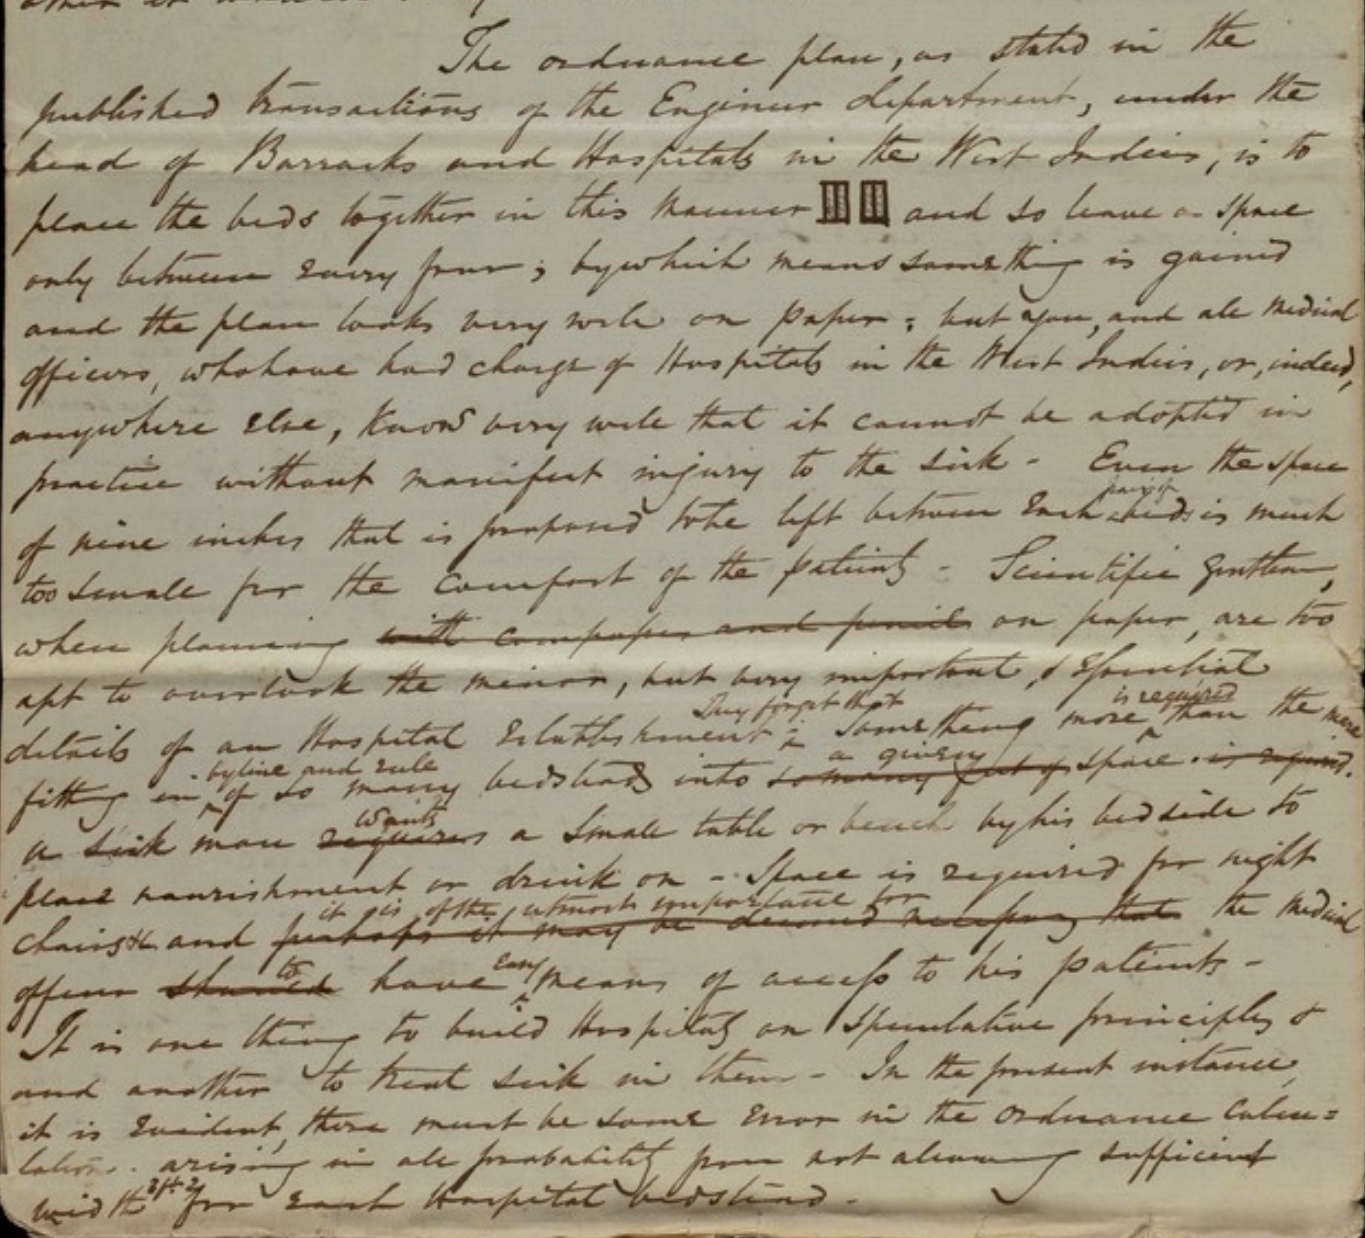 The ordnance plan, as stated in the
published transactions of the Engineer department, under the
head of Barracks and Hospitals in the West Indies, is to
place the beds together in this manner and so leave a space
only between every four; by which means something is gained
and the plan looks very well on paper; but you, and all medical
officers, who have had charge of Hospitals in the West Indies, or, indeed,
anywhere else, know very well that it cannot be adopted in
practice without manifest injury to the sick - Even the space
of nine inches that is proposed to be left between each pair of beds is much
too small for the comfort of the patients - Scientific gentlemen,
when planning with compasses and pencils on paper, are too
apt to overlook the minor, but very important, & essential
details of an Hospital Establishment; They forget that something more is required than the mere
fitting in by line and rule of so many bedsteads into so many feet of a given space. is required.
a sick man requires wants a small table or bench by his bedside to
place nourishment or drink on - Space is required for night
chairs &c and perhaps it may be deemed necessary that it is of the utmost importance for the medical
officer should to have easy means of access to his patients -
It is one thing to build Hospitals on speculative principles &
and another to treat sick in them - In the present instance,
it is evident, there must be some error in the ordnance calcu=
lation. arising in all probability from not allowing sufficient
width for each Hospital bedstead -